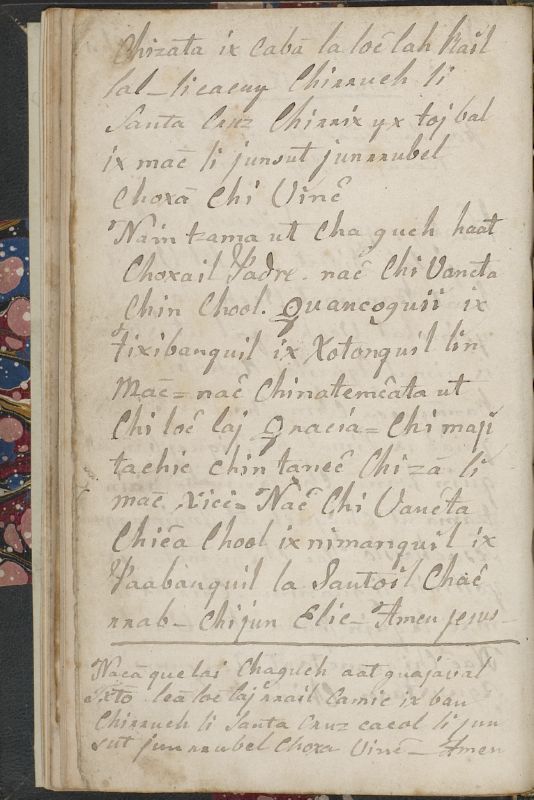 Chizata ix Cabā la loc̄ lah Rail
lal_ li cacuy Chirrueh li
Santa Cruz Chirrix yx toj bal
ix mac̄ li junsut junrrubel
Choxā Chi Vinc̄
Nain tzama ut Cha gueh haat
Choxail Padre. nac̄ Chi Vanc̄ta
Chin Chool. Quancoguii ix
tixibanquil ix Xotonquil lin
Mac̄ = nac̄ Chinatemc̄ata ut
Chi loc̄ laj Gracia = Chi maji
tachic chin tanec̄ Chi zā li
mac̄ xici = Nac̄ Chi Vanc̄ta
Chic̄a Chool ix nimanquil ix
Paabanquil la Santoil Chac̄
rrab_ Chijun Elic_ Amen Jesus_
Nacā que lai Chagueh aat guajaual
Jxto lea loc̄ laj rrail Camic ix ban
Chirrueh li Santa Cruz cacol li jun
sut junrrubel Choxa Vinc̄ _ Amen